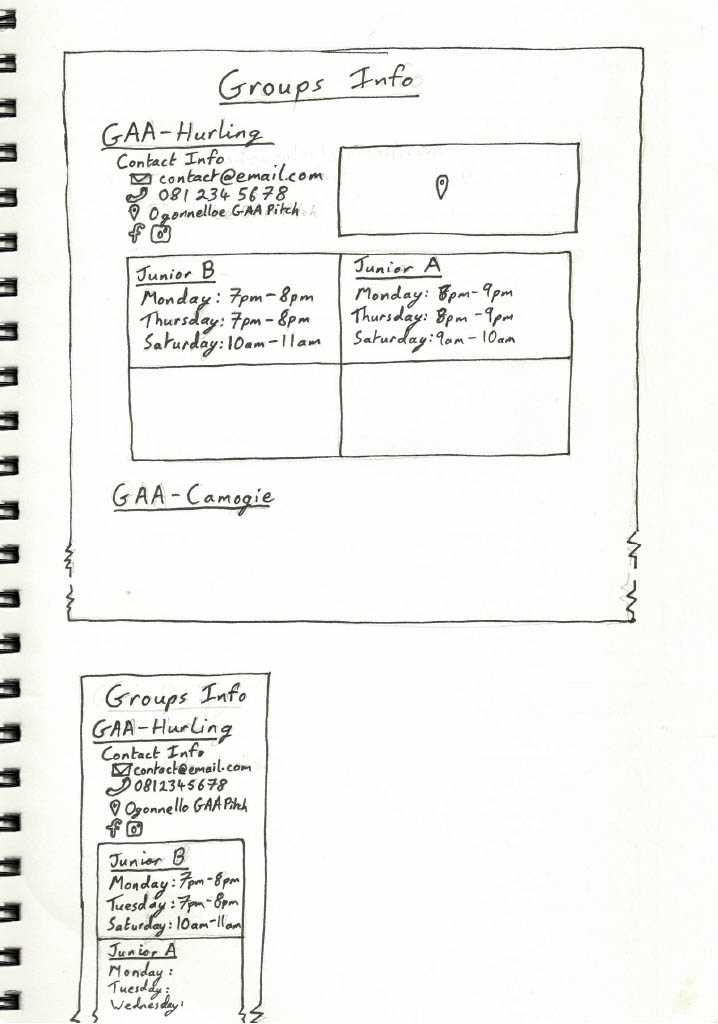 Groups Info
GAA-Hurling
Contact Info
contact@email.com
081 234 5678
Ogonnelloe GAA Pitch
Junior B
Monday: 7pm-8pm
Thursday: 7pm-8pm
Saturday: 10am-11am
Junior A
Monday: 8pm-9pm
Thursday: 8pm-9pm
Saturday: 9am-10am
GAA-Camogie
Groups Info
GAA-Hurling
Contact Info
contact@email.com
0812345678
Ogonnello GAA Pitch
Junior B
Monday: 7pm-8pm
Tuesday: 7pm-8pm
Saturday: 10am-11am
Junior A
Monday:
Tuesday:
Wednesday: